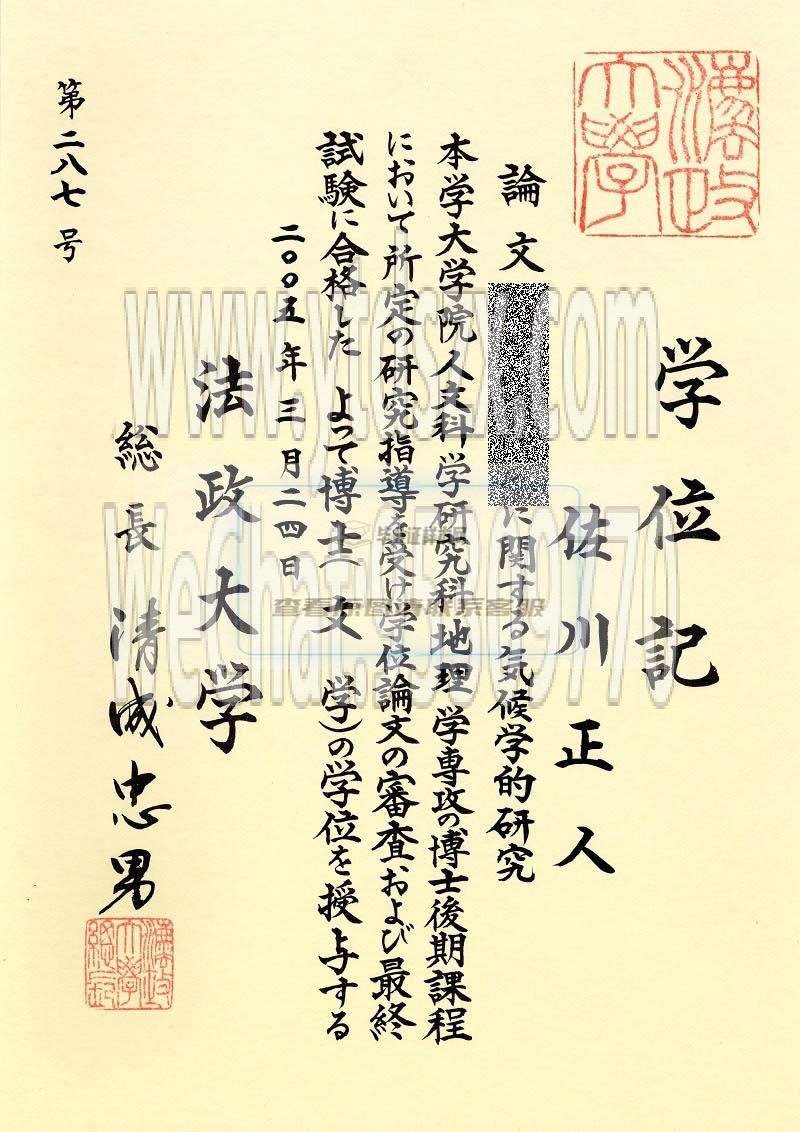 法政大學
学位記
佐川正人
論文
に関する気候学的研究
本学大学院人文科学研究科地理学専攻の博士後期課程
において所定の研究指導を受け学位論文の審査および最終
試験に合格した よって博士(文 学)の学位を授与する
二〇〇五年三月二四日
法政大学
総長 清成忠男
法政大學総長
第二八七号
www.ytcszx.com
Wechat:9569770
查看原图请联系客服